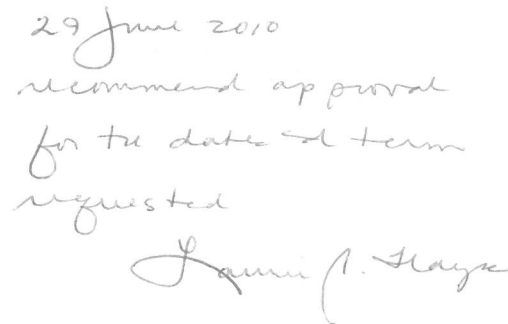 29 June 2010
recommend approval
for the dates and term
requested